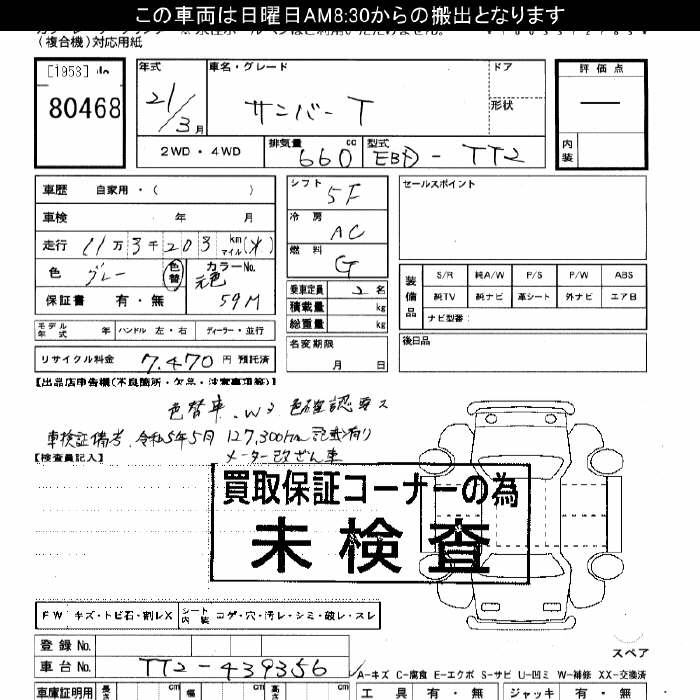 この車両は日曜日AM8:30からの搬出となります
(複合機)対応用紙
[1953]
80468
年式
21/3月
車名・グレード
サンバーT
ドア
形状
評価点
内装
2WD・4WD
排気量 660 cc
型式 EBD-TT2
車歴 自家用・( )
車検 年 月
走行 11万3千203 km マイル
色 グレー 色替
カラーNo. 元色 59M
保証書 有・無
モデル年式 年 ハンドル 左・右 ディーラー・並行
リサイクル料金 7,470 円 預託済
シフト 5F
冷房 AC
燃料 G
乗車定員 2 名
積載量 kg
総重量 kg
名変期限
月 日
セールスポイント
装備品
S/R 純A/W P/S P/W ABS
純TV 純ナビ 革シート 外ナビ エアB
ナビ型番:
後日品
【出品店申告欄(不良箇所・欠品・注意事項等)】
色替車、W3 色確認要ス
車検証備考、令和5年5月 127,300km 記載有り
メーター改ざん車
【検査員記入】
買取保証コーナーの為
未検査
FW キズ・トビ石・割レX
シート内装 コゲ・穴・汚レ・シミ・破レ・スレ
登録No.
車台No. TT2-439356
スペア
A-キズ C-腐食 E-エクボ S-サビ U-凹ミ W-補修 XX-交換済
車庫証明用 長さ cm 幅 cm 高さ cm
工具 有・無 ジャッキ 有・無